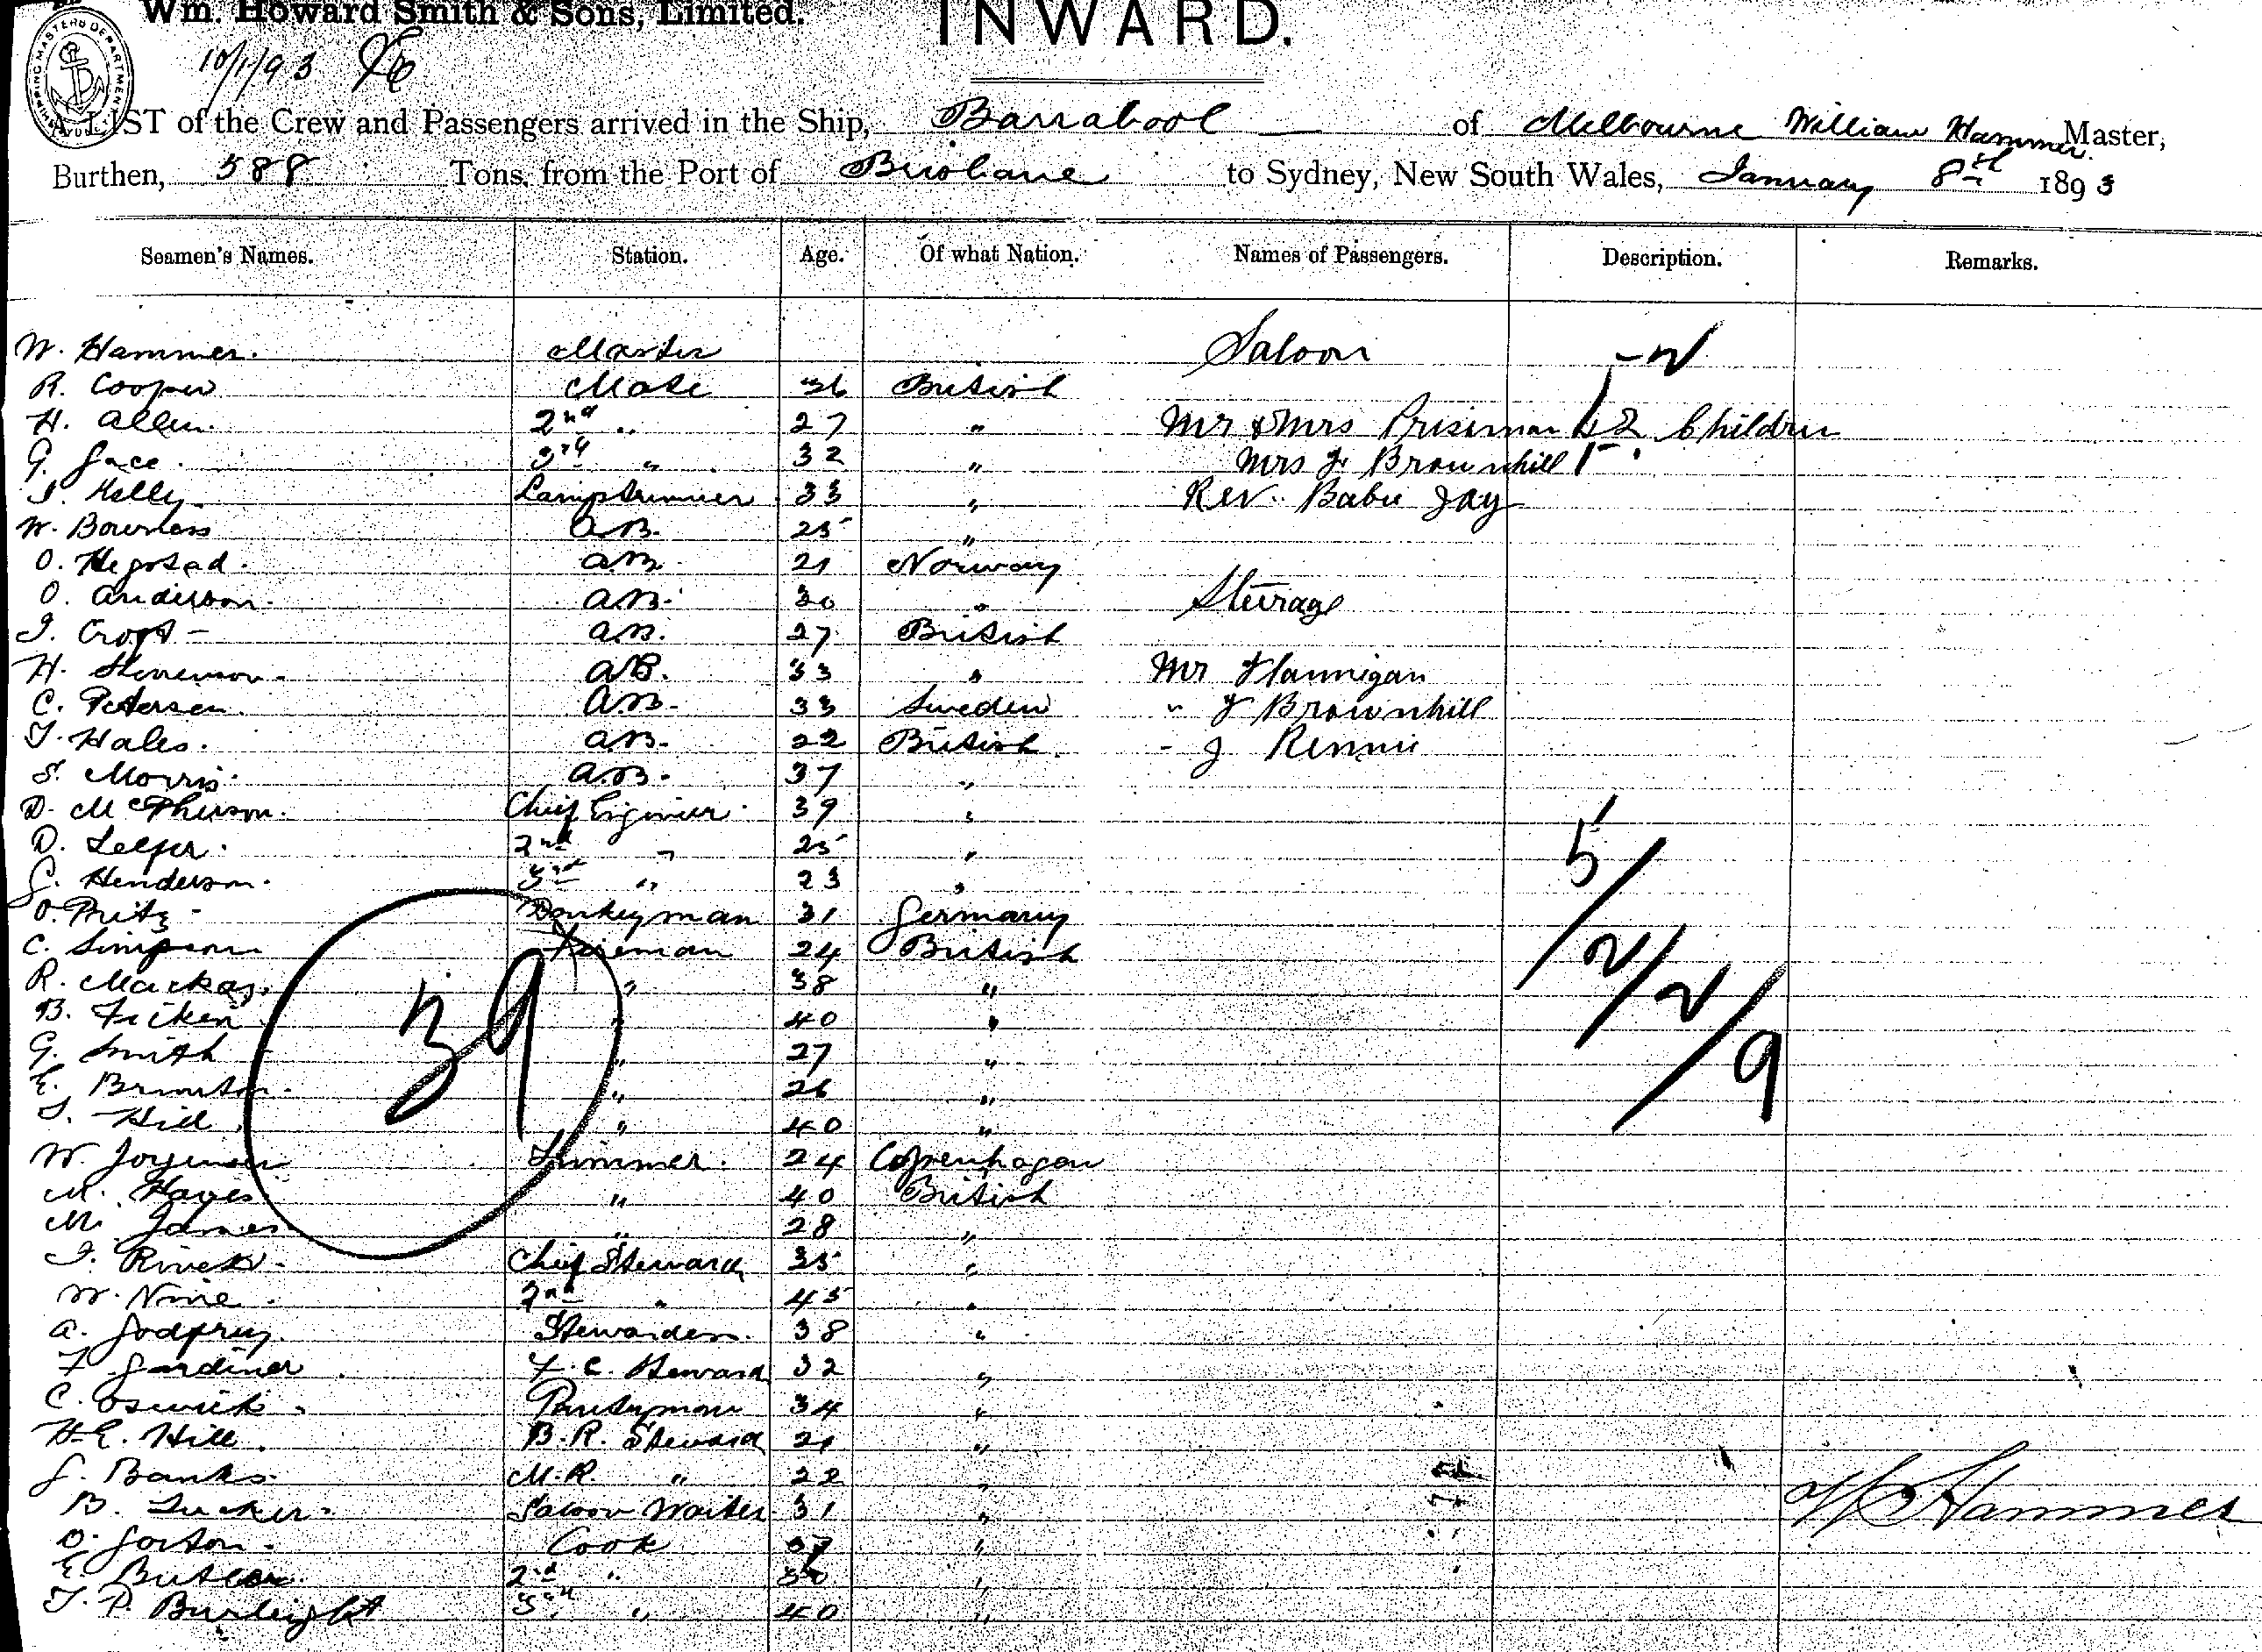 Wm. Howard Smith & Sons, Limited.
INWARD.
10/1/93
SHIPPING MASTERS DEPARTMENT
A LIST of the Crew and Passengers arrived in the Ship, Barrabool of Melbourne William Hammer Master,
Burthen, 588 Tons, from the Port of Brisbane to Sydney, New South Wales, January 8th 1893
Seamen's Names. Station. Age. Of what Nation. Names of Passengers. Description. Remarks.
W. Hammer. Master Saloon
R. Cooper Mate 36 British
H. Allen. 2nd " 27 " Mr & Mrs Prisiman & 2 Children
G. Jace. 3rd " 32 " Mrs J. Brownhill 1
Kelly. Lamptrimmer 33 " Rev. Babu Jay
W. Bowness A.B. 25 "
O. Hegstad. A.B. 21 Norway
O. Anderson. A.B. 30 " Steerage
Croft A.B. 27 British
H. Stevenson. A.B. 33 " Mr Flannigan
C. Petersen. A.B. 33 Sweden " J Brownhill
T. Hales. A.B. 22 British - J Rennie
S. Morris. A.B. 37 "
D. McPherson. Chief Engineer 39 "
D. Leeper. 2nd " 25 "
G. Henderson. 3rd " 23 "
O. Pritz Donkeyman 31 Germany
C. Simpson Fireman 24 British
R. Mackay. " 38 "
B. Ficken " 40 "
G. Smith " 27 "
E. Brunton. " 26 "
Hill " 40 "
W. Jorgensen Trimmer. 24 Copenhagen
M. Hayes " 40 British
M. James " 28 "
Chief Steward 35 "
W. Nine. 2nd " 45 "
A. Godfrey. Stewardess. 38 "
F. Gardiner F.C. Steward 32 "
C. Oswick. Pantryman 34 "
H.E. Hill. B.R. Steward 21 "
G. Banks. M.R. " 22 "
B. Tucker. Saloon Waiter 31 "
O. Gorton. Cook 37 "
E. Butler. 2nd " "
T. P. Burleight 3rd " 40 "
39
5/2/2/9
W Hammer